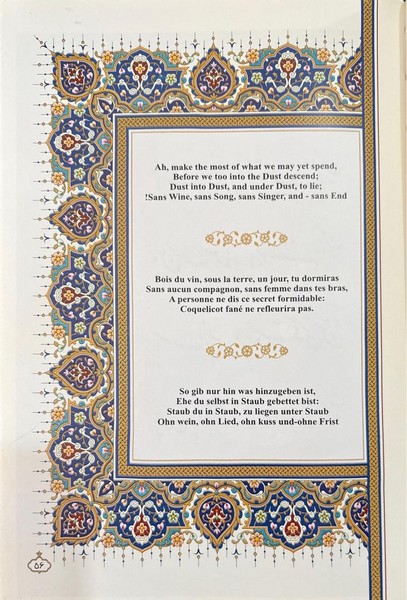 Ah, make the most of what we may yet spend,
Before we too into the Dust descend;
Dust into Dust, and under Dust, to lie;
!Sans Wine, sans Song, sans Singer, and - sans End
Bois du vin, sous la terre, un jour, tu dormiras
Sans aucun compagnon, sans femme dans tes bras,
A personne ne dis ce secret formidable:
Coquelicot fané ne refleurira pas.
So gib nur hin was hinzugeben ist,
Ehe du selbst in Staub gebettet bist:
Staub du in Staub, zu liegen unter Staub
Ohn wein, ohn Lied, ohn kuss und-ohne Frist
۵۶